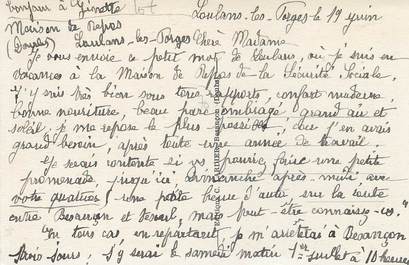 bonjour à Ginette
Loulans-les-Forges le 19 juin
Maison de Repos
(Doubs) Loulans-les-Forges Chère Madame
Je vous envoie ce petit mot de Loulans, où je suis en
vacances à la Maison de Repos de la Sécurité Sociale,
j'y suis très bien sous tous rapports, confort moderne,
bonne nourriture, beau parc ombragé grand air et
soleil, je me repose le plus possible, car j'en avais
grand besoin, après toute une année de travail.
Je serais contente si vs pouviez faire une petite
promenade jusqu'ici, dimanche après-midi avec
votre quatre cv, une petite heure d'auto sur la route
entre Besançon et Vesoul, mais peut-être connaissez-vs."
En tous cas en repartant, je m'arrêterai à Besançon
j'y serai le samedi matin 1er juillet à 10 heures